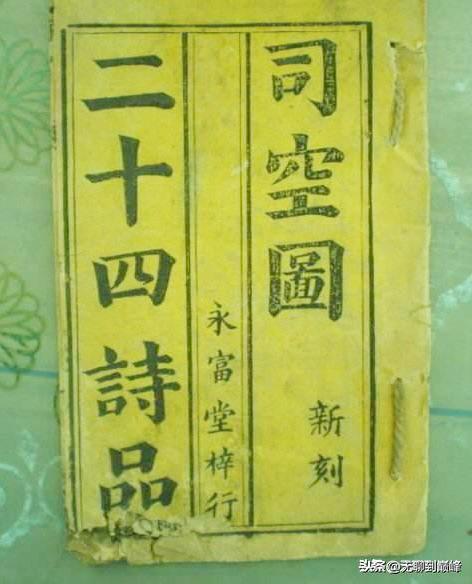 司空圖
新刻
永富堂梓行
二十四詩品
头条 @无聊到巅峰